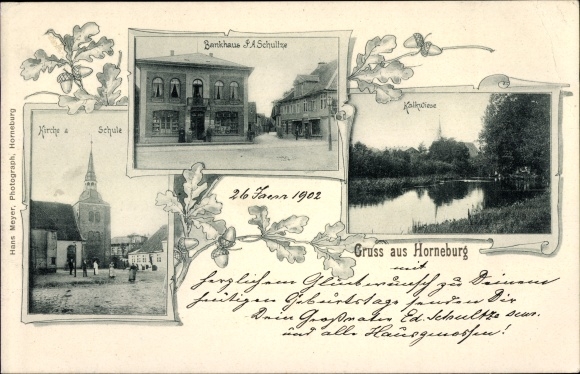 Hans Meyer, Photograph, Horneburg
Bankhaus F.A. Schultze
Kirche & Schule
Kalkwiese
26 Janr 1902
Gruss aus Horneburg
mit
herzlichem Glückwunsch zu Deinem
heutigen Geburtstage senden Dir
Dein Großvater Ed. Schultze sen.
und alle Hausgenossen!